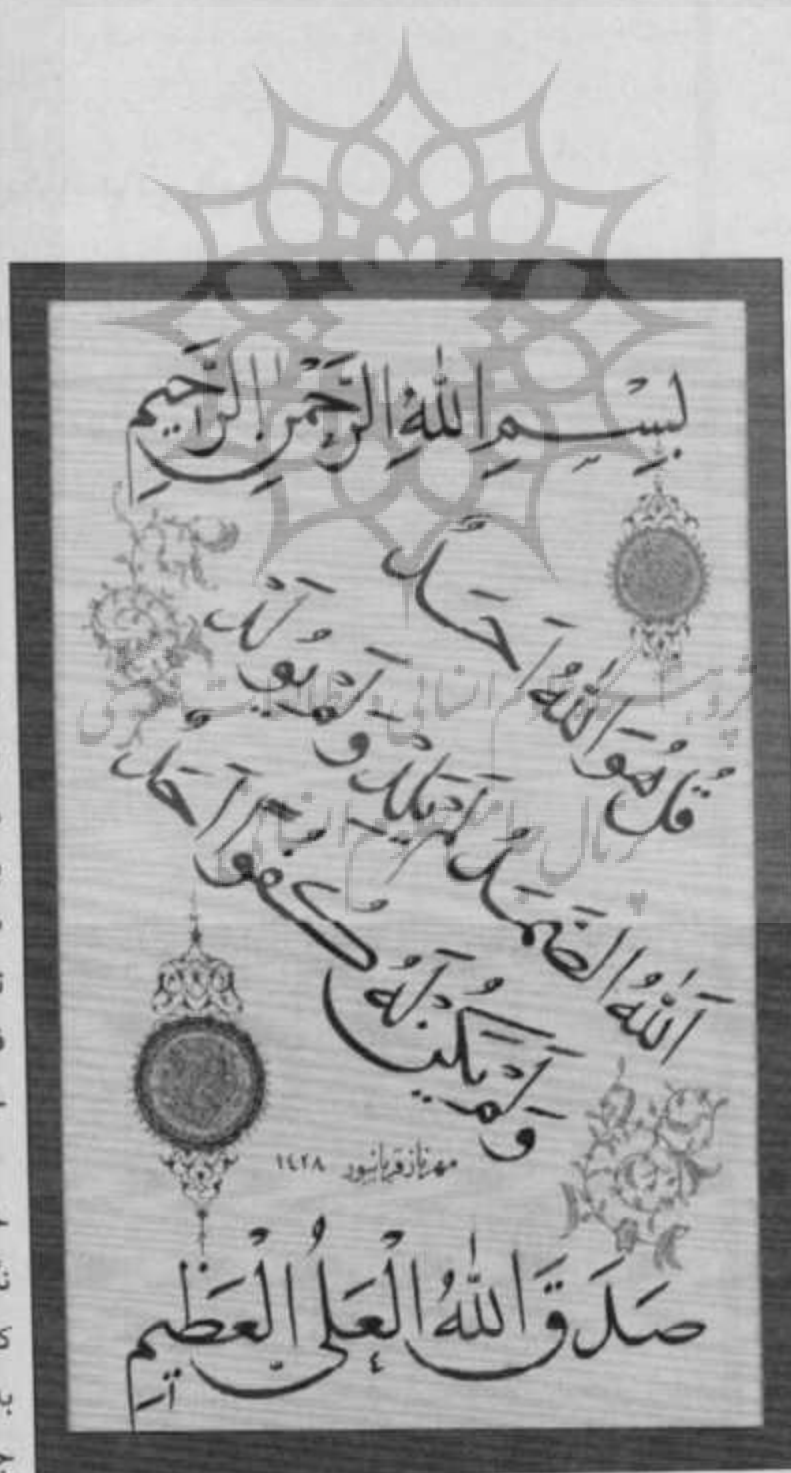 بِسْمِ اللّٰهِ الرَّحْمٰنِ الرَّحِيمِ
قُل هُوَ اللّٰهُ اَحَدٌ
اَللّٰهُ الصَّمَدُ لَمْ يَلِدْ وَلَمْ يُولَدْ
وَلَمْ يَكُنْ لَهُ كُفُوًا اَحَدٌ
مهرناز قربانپور ١٤٢٨
صَدَقَ اللّٰهُ الْعَلِيُّ الْعَظِيمِ
پژوهشگاه علوم انسانی و مطالعات فرهنگی
پرتال جامع علوم انسانی